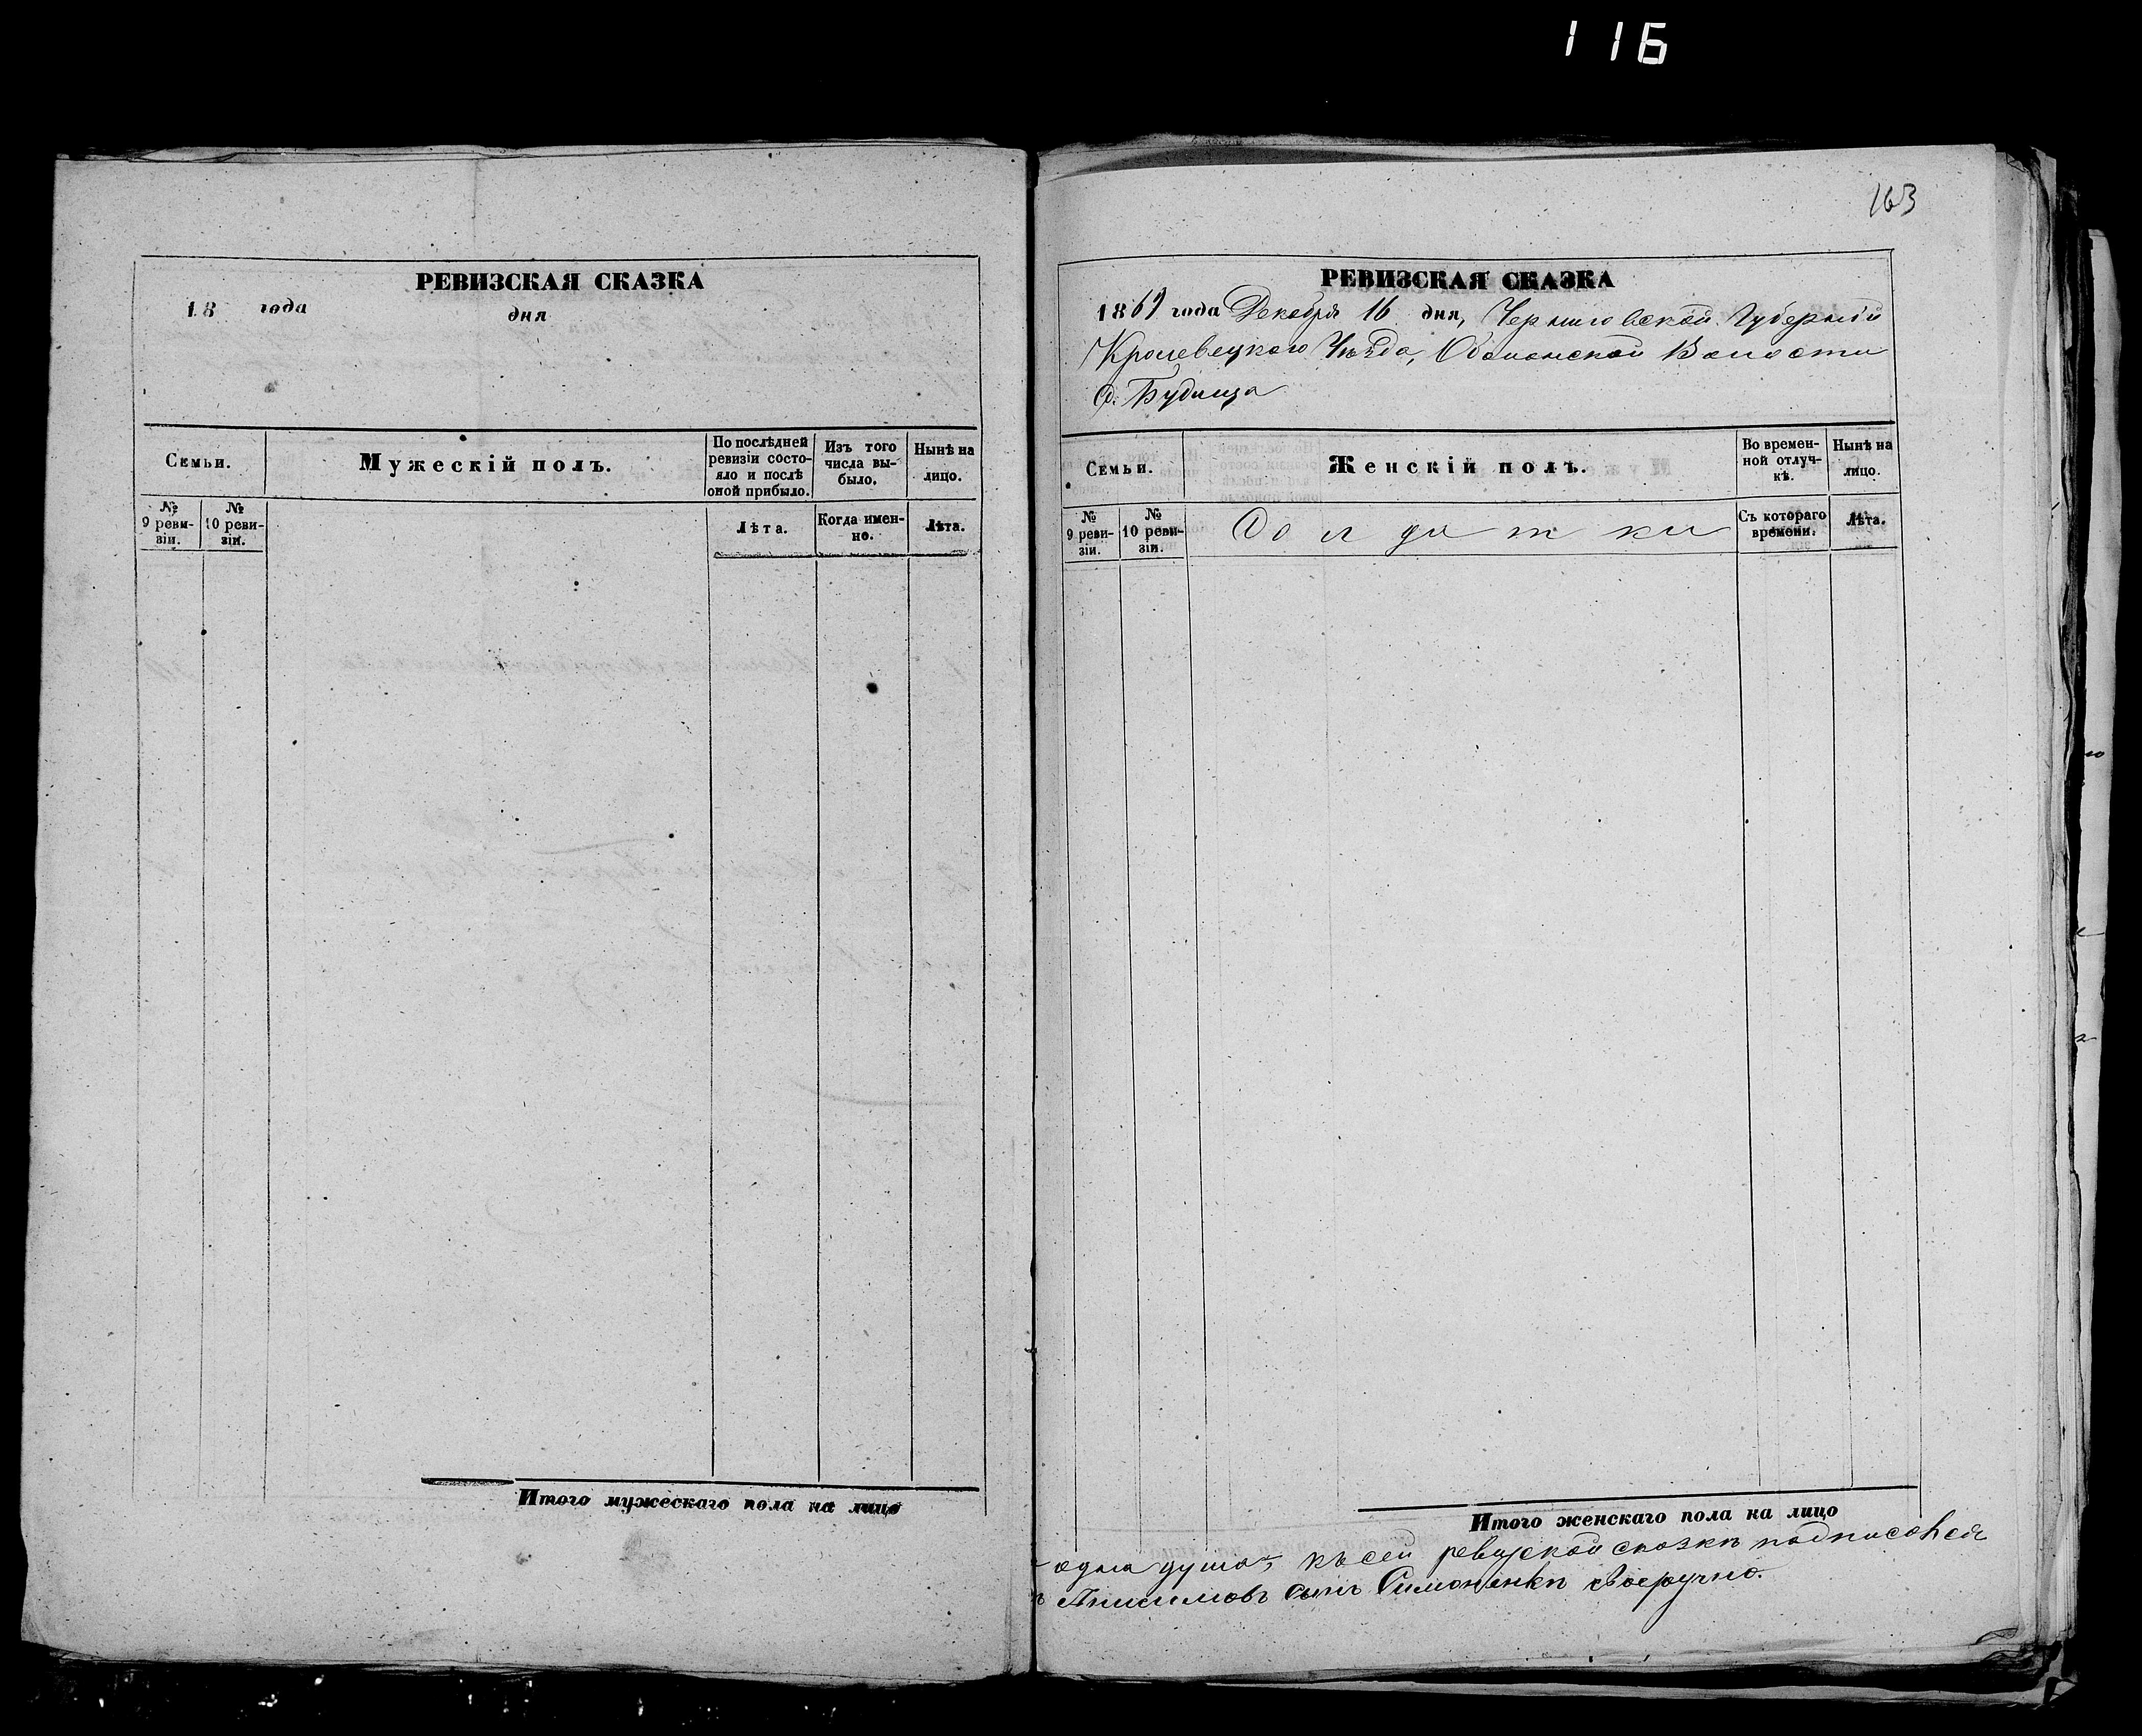 116
РЕВИЗСКАЯ СКАЗКА
18 года дня
Семьи.
Мужескій полъ.
По послѣдней ревизіи состояло и послѣ оной прибыло.
Изъ того числа выбыло.
Нынѣ на лицо.
№ 9 ревизіи.
№ 10 ревизіи.
Лѣта.
Когда именно.
Лѣта.
Итого мужескаго пола на лицо
163
РЕВИЗСКАЯ СКАЗКА
1869 года Декабря 16 дня, Черниговской Губерніи
Кролевецкаго Уѣзда, Волости
С. Будища
Семьи.
Женскій полъ.
Во временной отлучкѣ.
Нынѣ на лицо.
№ 9 ревизіи.
№ 10 ревизіи.
Солдатки
Съ котораго времени.
Лѣта.
Итого женскаго пола на лицо
одна душа, къ сей ревизской сказкѣ подписался
Анисимовъ сынъ Симоненко своеручно.